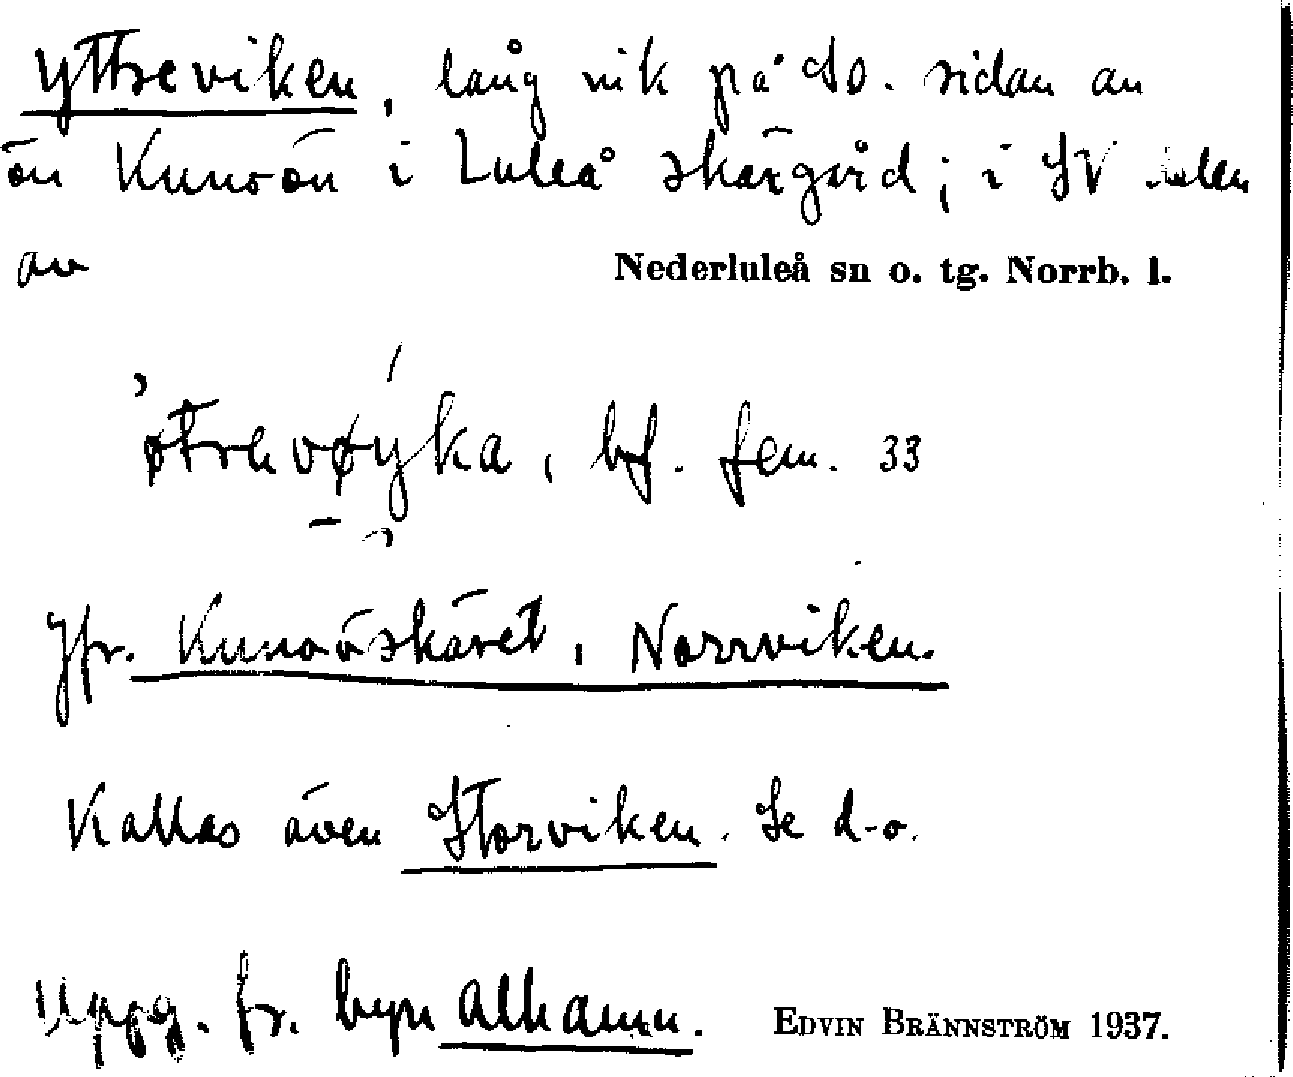 Yttreviken, lång vik på SO. sidan av
ön Kunoön i Luleå skärgård; i SV delen
av
Nederluleå sn o. tg. Norrb. l.
bf. fem. 33
Jfr. Kunoöskäret, Norrviken.
Kallas även Storviken. Se d-o.
Uppg. fr. byn Alhamn.
EDVIN BRÄNNSTRÖM 1937.